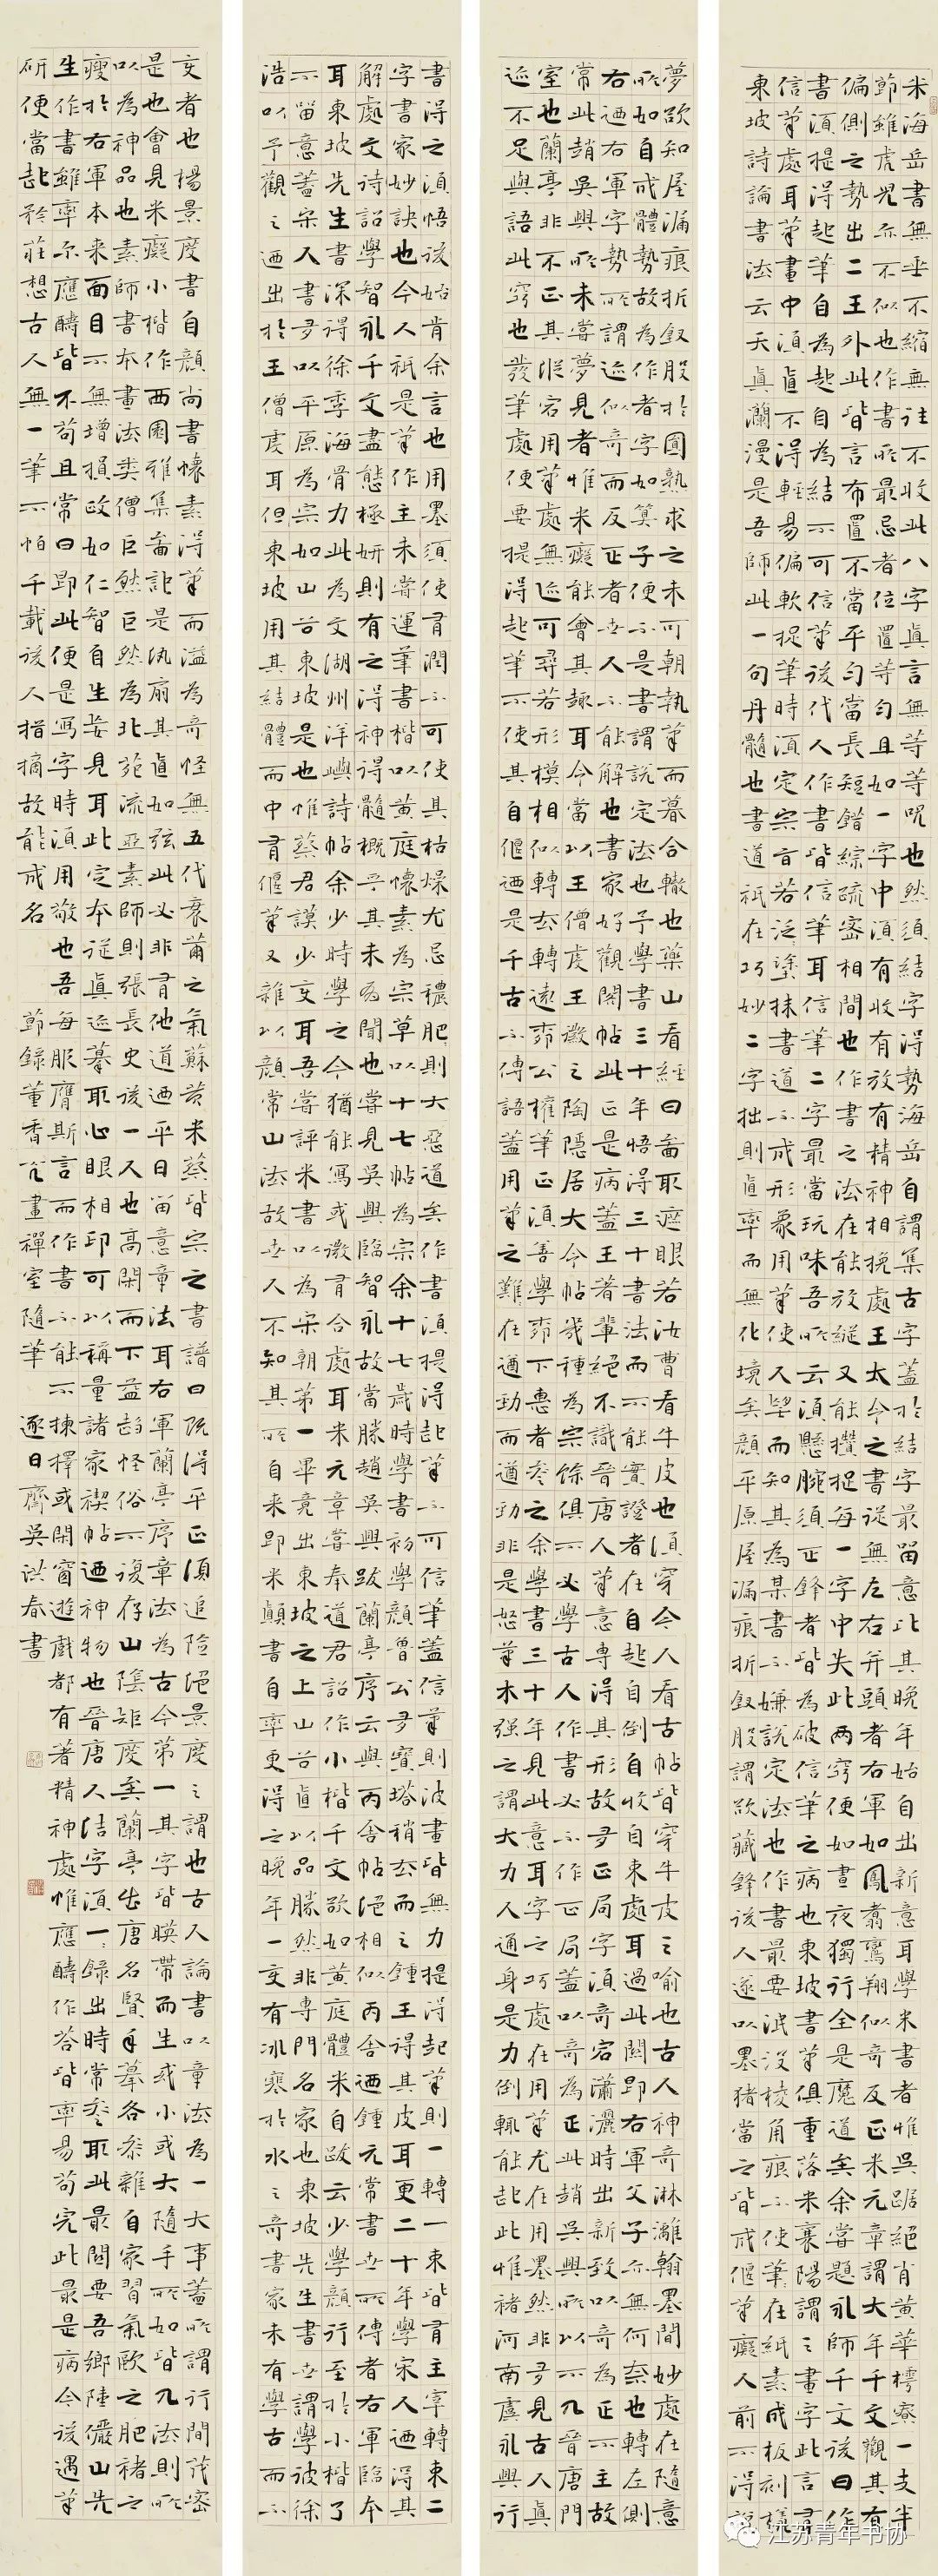 米海岳書無垂不縮無往不收此八字真言無等等呪也然須結字得勢海岳自謂集古字蓋於結字最留意比其晚年始自出新意耳學米書者惟吳琚絕肖黃華樗寮一支半
節雖虎兒亦不似也作書所最忌者位置等勻且如一字中須有收有放有精神相挽處王太令之書從無左右並頭者右軍如鳳翥鸞翔似奇反正米元章謂大年千文觀其有
偏側之勢出二王外此皆言布置不當平勻當長短錯綜疏密相間也作書之法在能放縱又能攢捉每一字中失此兩竅便如晝夜獨行全是魔道矣余嘗題永師千文後曰作
書須提得起筆自為起自為結不可信筆後代人作書皆信筆耳信筆二字最當玩味吾所云須懸腕須正鋒者皆為破信筆之病也東坡書筆俱重落米襄陽謂之畫字此言有
信筆處耳筆畫中須直不得輕易偏軟捉筆時須定宗旨若泛塗抹書道不成形象用筆使人望而知其為某書不嫌說定法也作書最要泯沒棱角痕不使筆在紙素成板刻樣
東坡詩論書法云天真瀾漫是吾師此一句丹髓也書道祇在巧妙二字拙則直率而無化境矣顏平原屋漏痕折釵股謂欲藏鋒後人遂以墨豬當之皆成偃筆癡人前不得說
夢欲知屋漏痕折釵股於圓熟求之未可朝執筆而暮合轍也藥山看經曰圖取遮眼若汝曹看牛皮也須穿今人看古帖皆穿牛皮之喻也古人神奇淋漓翰墨間妙處在隨意
所如自成體勢故為作者字如算子便不是書謂說定法也予學書三十年悟得書法而不能實證者在自起自倒自收自束處耳過此關即右軍父子亦無何奈也轉左側
右迺右軍字勢所謂迹似奇而反正者世人不能解也書家好觀閣帖此正是病蓋王著輩絕不識晉唐人筆意專得其形故多正局字須奇宕瀟灑時出新致以奇為正不主故
常此趙吳興所未嘗夢見者惟米癡能會其趣耳今當以王僧虔王徽之陶隱居大令帖幾種為宗餘俱不必學古人作書必不作正局蓋以奇為正此趙吳興所以不入晉唐門
室也蘭亭非不正其縱宕用筆處無迹可尋若形模相似轉去轉遠柳公權筆正須善學柳下惠者參之余學書三十年見此意耳字之巧處在用筆尤在用墨然非多見古人真
迹不足與語此竅也發筆處便要提得起筆不使其自偃迺是千古不傳語蓋用筆之難在遒勁而遒勁非是怒筆木強之謂大力人通身是力倒輒能起此惟褚河南虞永興行
書得之須悟後始肯余言也用墨須使有潤不可使其枯燥尤忌穠肥則大惡道矣作書須提得起筆不可信筆蓋信筆則波畫皆無力提得起筆則一轉一束皆有主宰轉束二
字書家妙訣也今人祇是筆作主未嘗運筆書楷以黃庭懷素為宗草以十七帖為宗余十七歲時學書初學顏魯公多寶塔稍去而之鍾王得其皮耳更二十年學宋人迺得其
解處文詩詔學智永千文盡態極妍則有之得神得髓概乎其未有聞也嘗見吳興臨智永故當勝趙吳興跋蘭亭序云與丙舍帖絕相似丙舍迺鍾元常書世所傳者右軍臨本
耳東坡先生書深得徐季海骨力此為文湖州洋嶼詩帖余少時學之今猶能寫或微有合處耳米元章嘗奉道君詔作小楷千文欲如黃庭體米自跋云少學顏行至於小楷了
不留意蓋宋人書多以平原為宗如山谷東坡是也惟蔡君謨少變耳吾嘗評米書以為宋朝第一畢竟出東坡之上山谷直以品勝然非專門名家也東坡先生書世謂學彼徐
浩以予觀之迺出於王僧虔耳但東坡用其結體而中有偃筆又雜以顏常山法故世人不知其所自來即米顛書自率更得之晚年一變有冰寒於水之奇書家未有學古而不
變者也楊景度書自顏尚書懷素得筆而溢為奇怪無五代衰薾之氣蘇黃米蔡皆宗之書譜曰既得平正須追險絕景度之謂也古人論書以章法為一大事蓋所謂行間茂密
是也會見米癡小楷作西園雅集圖記是紈扇其直如弦此必非有他道迺平日留意章法耳右軍蘭亭序章法為古今第一其字皆映帶而生或小或大隨手所如皆入法則所
以為神品也素師書本畫法類僧巨然巨然為北苑流亞素師則張長史後一人也高閑而下益趨怪俗不復存山陰矩度矣蘭亭出唐名賢手摹各參雜自家習氣歐之肥褚之
瘦於右軍本來面目不無增損政如仁智自生妄見耳此定本從真迹摹取心眼相印可以稱量諸家禊帖迺神物也晉唐人結字須一一錄出時常參取此最關要吾鄉陸儼山先
生作書雖率爾應酬皆不苟且常曰即此便是寫字時須用敬也吾每服膺斯言而作書不能不揀擇或閑窗遊戲都有著精神處惟應酬作答皆率易苟完此最是病今後遇筆
研便當起矜莊想古人無一筆不怕千載後人指摘故能成名 節錄董香光畫禪室隨筆 逐日齋吳洪春書
江苏青年书协